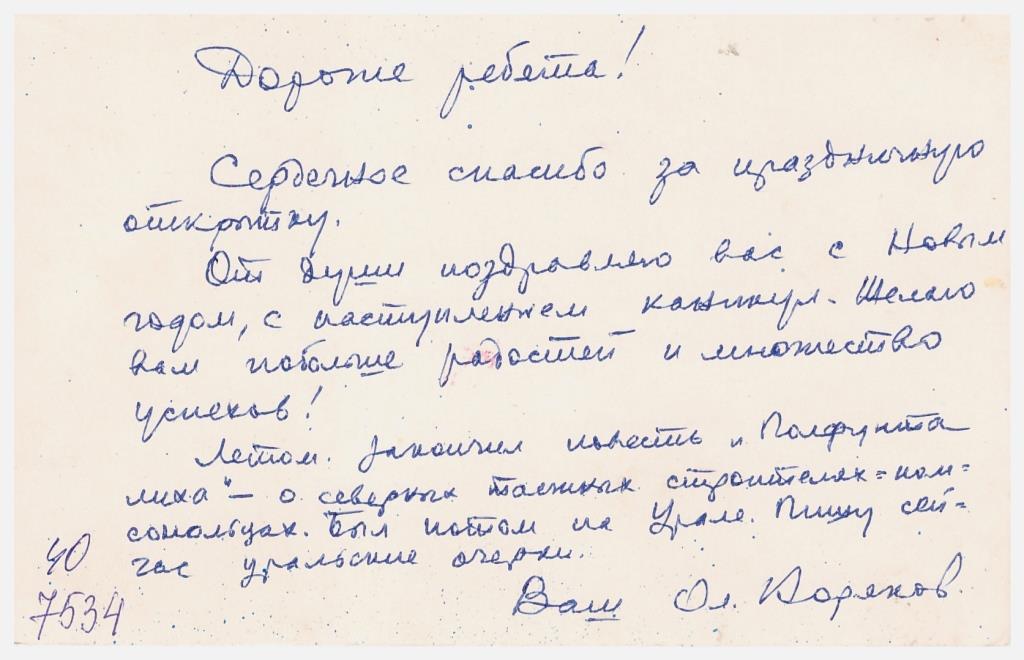 Дорогие ребята!
Сердечное спасибо за праздничную
открытку.
От души поздравляю вас с Новым
годом, с наступлением каникул. Желаю
вам побольше радостей и множество
успехов!
Летом закончил повесть „Полфунта
лиха" – о северных таежных строителях-ком-
сомольцах. Был потом на Урале. Пишу сей-
час уральские очерки.
Ваш Ол. Коряков.
40
7534